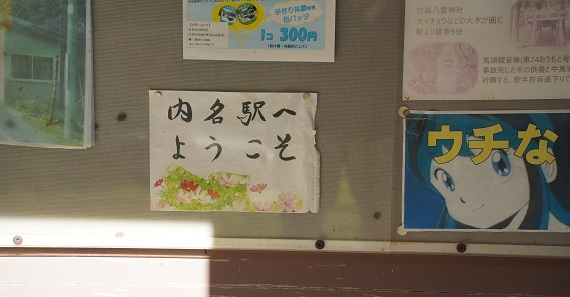 手作り体験特製
缶バッチ
1コ 300円
竹森八雲神社
大イチョウなどの大木が囲む
駅より徒歩5分
馬頭観音像(第24おうもと号
事故死した牛の供養と牛馬
祈願する。駅手前坂道下り
内名駅へ
ようこそ
ウチな